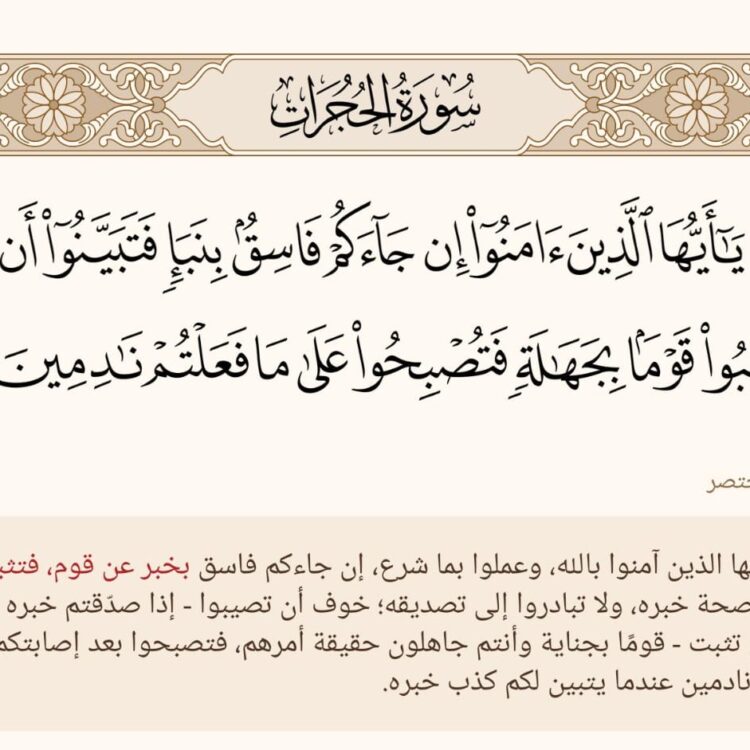 سُورَةُ الحُجُرَاتِ
يَٰٓأَيُّهَا ٱلَّذِينَ ءَامَنُوٓاْ إِن جَآءَكُمۡ فَاسِقُۢ بِنَبَإٖ فَتَبَيَّنُوٓاْ أَن
قَوۡمَۢا بِجَهَٰلَةٖ فَتُصۡبِحُواْ عَلَىٰ مَا فَعَلۡتُمۡ نَٰدِمِينَ
الذين آمنوا بالله، وعملوا بما شرع، إن جاءكم فاسق بخبر عن قوم،
خبره، ولا تبادروا إلى تصديقه؛ خوف أن تصيبوا - إذا صدّقتم خبره
تثبت - قومًا بجناية وأنتم جاهلون حقيقة أمرهم، فتصبحوا بعد إصابتكم
نادمين عندما يتبين لكم كذب خبره.